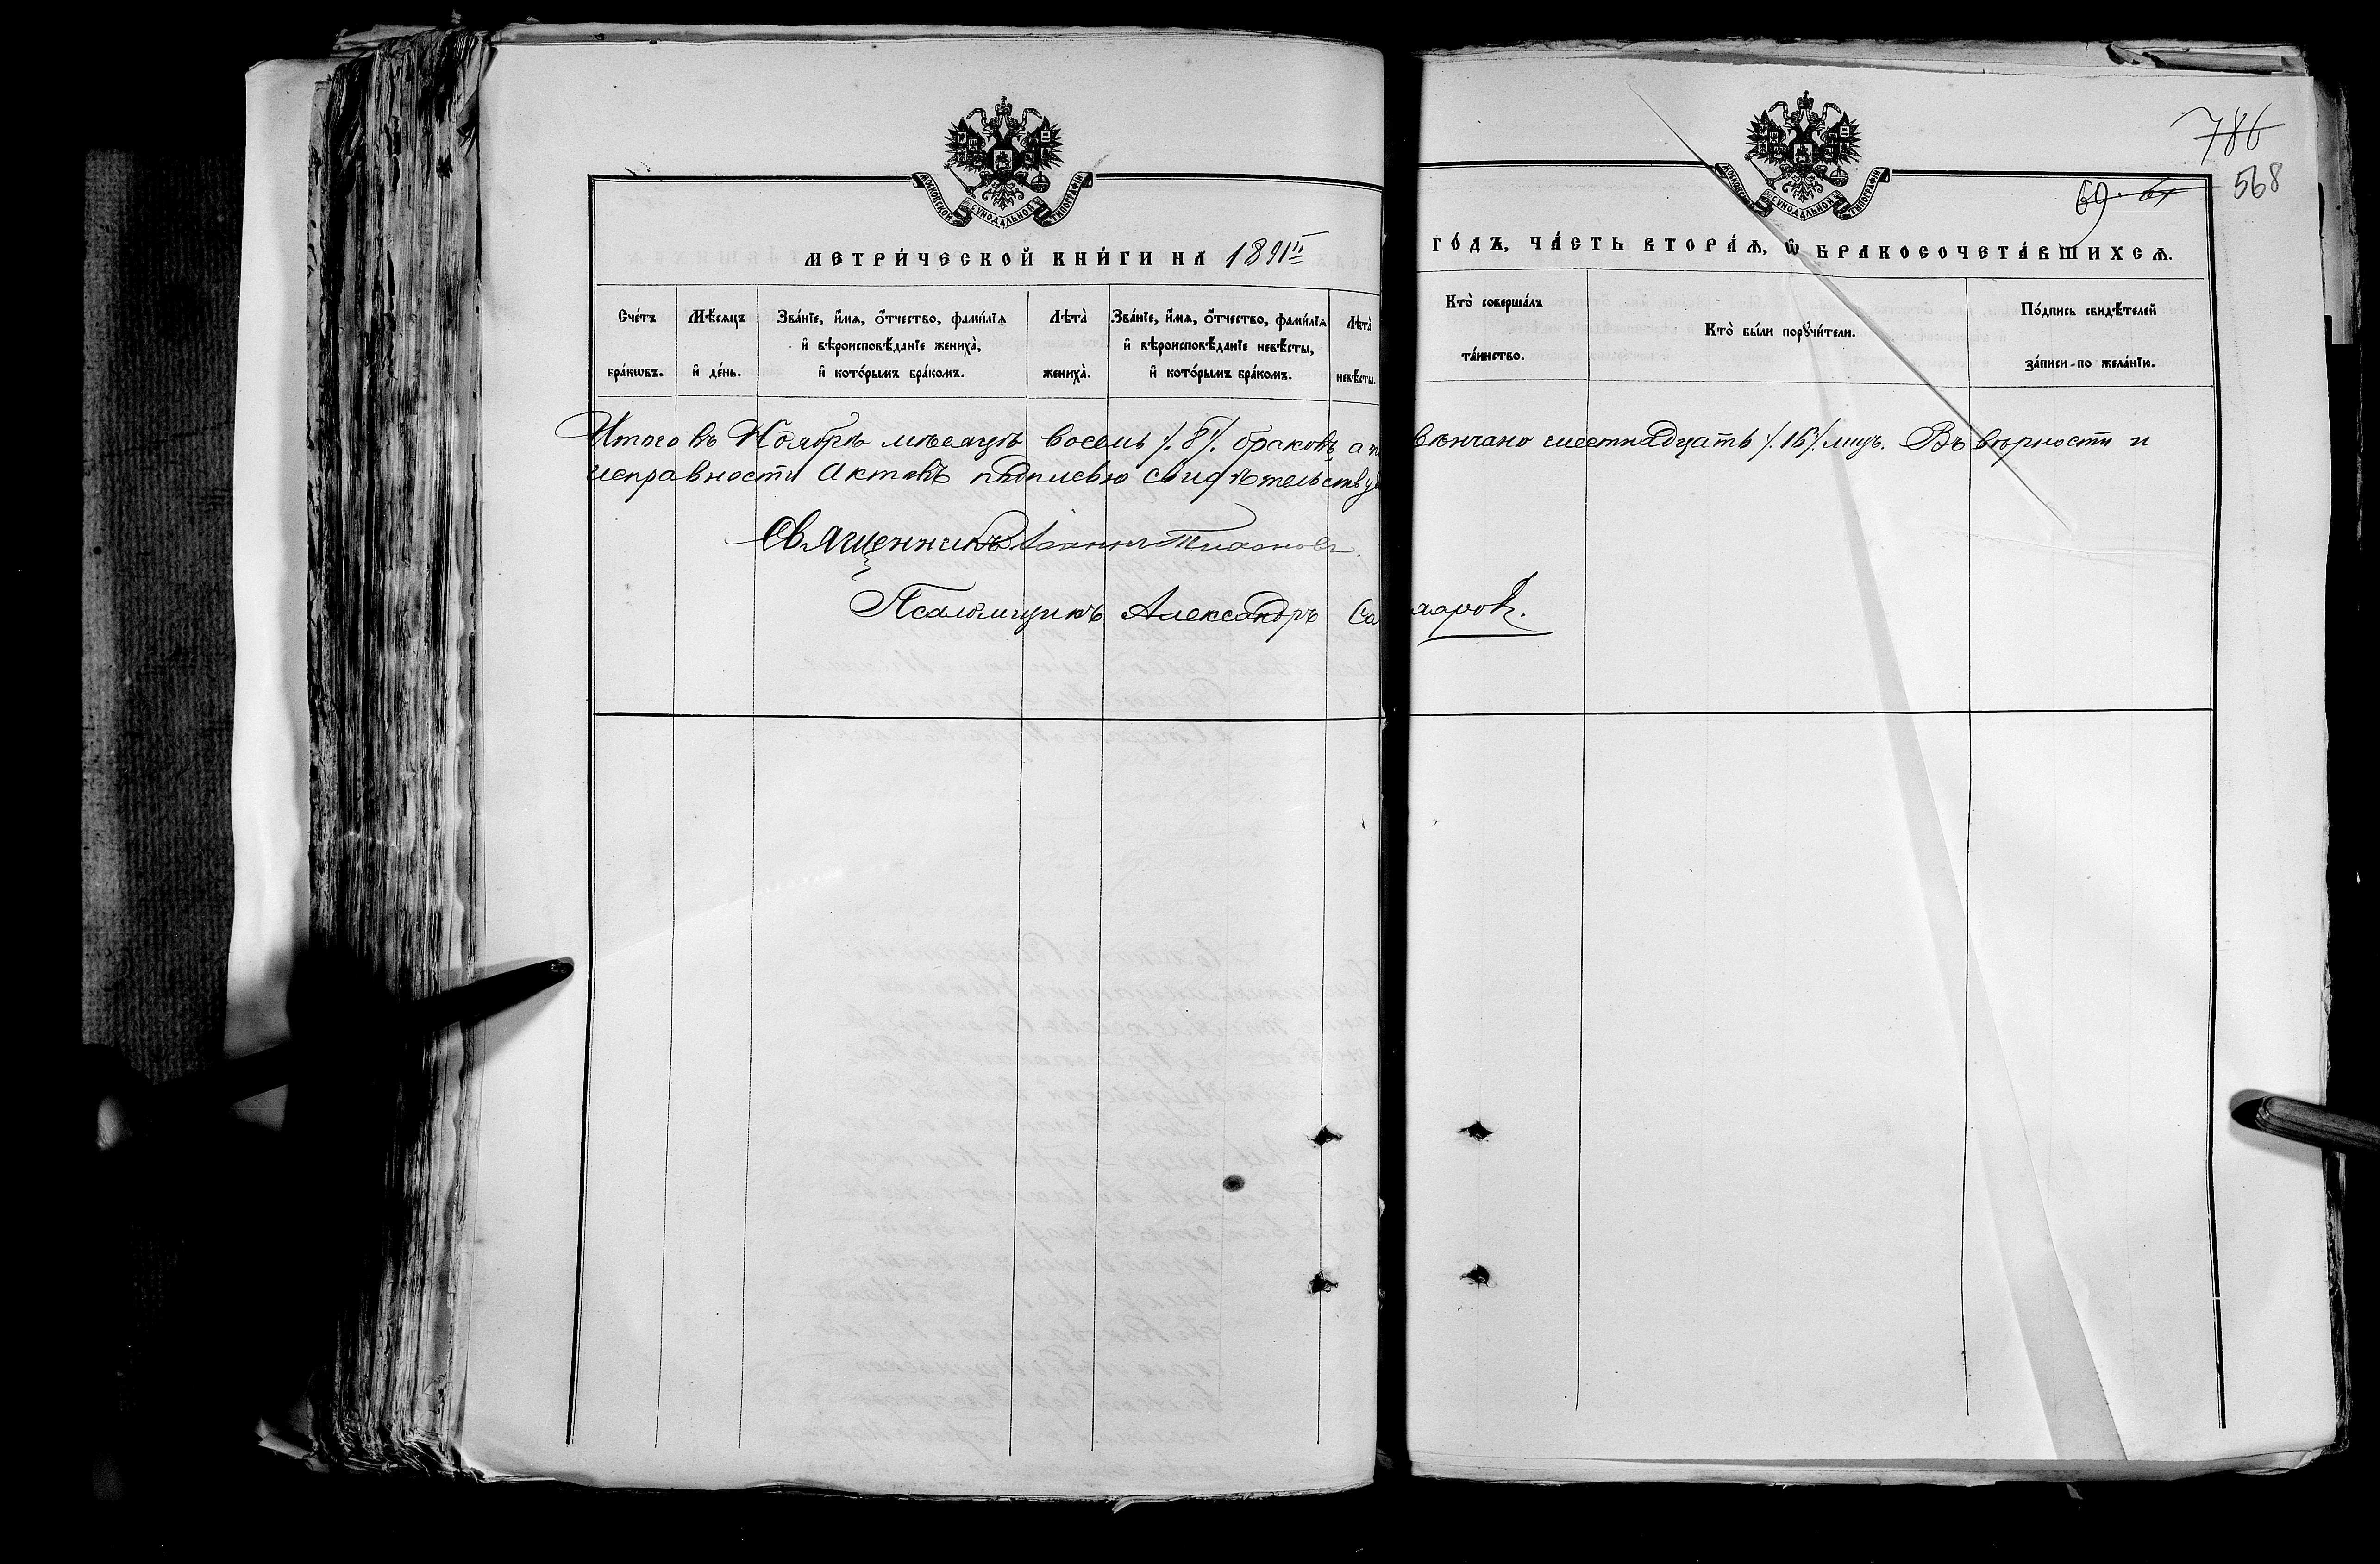 786
568
69. 61
МОСКОВСКОЙ СѴНОДАЛЬНОЙ ТИПОГРАФІИ
МОСКОВСКОЙ СѴНОДАЛЬНОЙ ТИПОГРАФІИ
МЕТРИ́ЧЕСКОЙ КНИ́ГИ НА 1891й ГО́ДЪ, ЧА́СТЬ ВТОРА́Ѧ, Ѿ БРАКОСОЧЕТА́ВШИХСѦ.
Сче́тъ бра́кѡвъ.
Мѣ́сяцъ и҆ де́нь.
Зва́нїе, и҆́мѧ, о҆́тчество, фами́лїѧ и҆ вѣроисповѣ́данїе жениха̀, и҆ кото́рымъ бра́комъ.
Лѣта̀ жениха̀.
Зва́нїе, и҆́мѧ, о҆́тчество, фами́лїѧ и҆ вѣроисповѣ́данїе невѣ́сты, и҆ кото́рымъ бра́комъ.
Лѣта̀ невѣ́сты.
Кто̀ соверша́лъ та́инство.
Кто̀ бы́ли порꙋчи́тели.
По́дпись свидѣ́телей за́писи-по жела́нїю.
Итого въ Ноябрѣ мѣсяцѣ восемь /.8/. браковъ а п вѣнчано шестнадцать /.16/. лицъ. Въ вѣрности и
исправности актовъ подписью свидѣтельству
Священникъ Іоаннъ Тихоновъ.
Псаломщикъ Александръ Са харовъ.